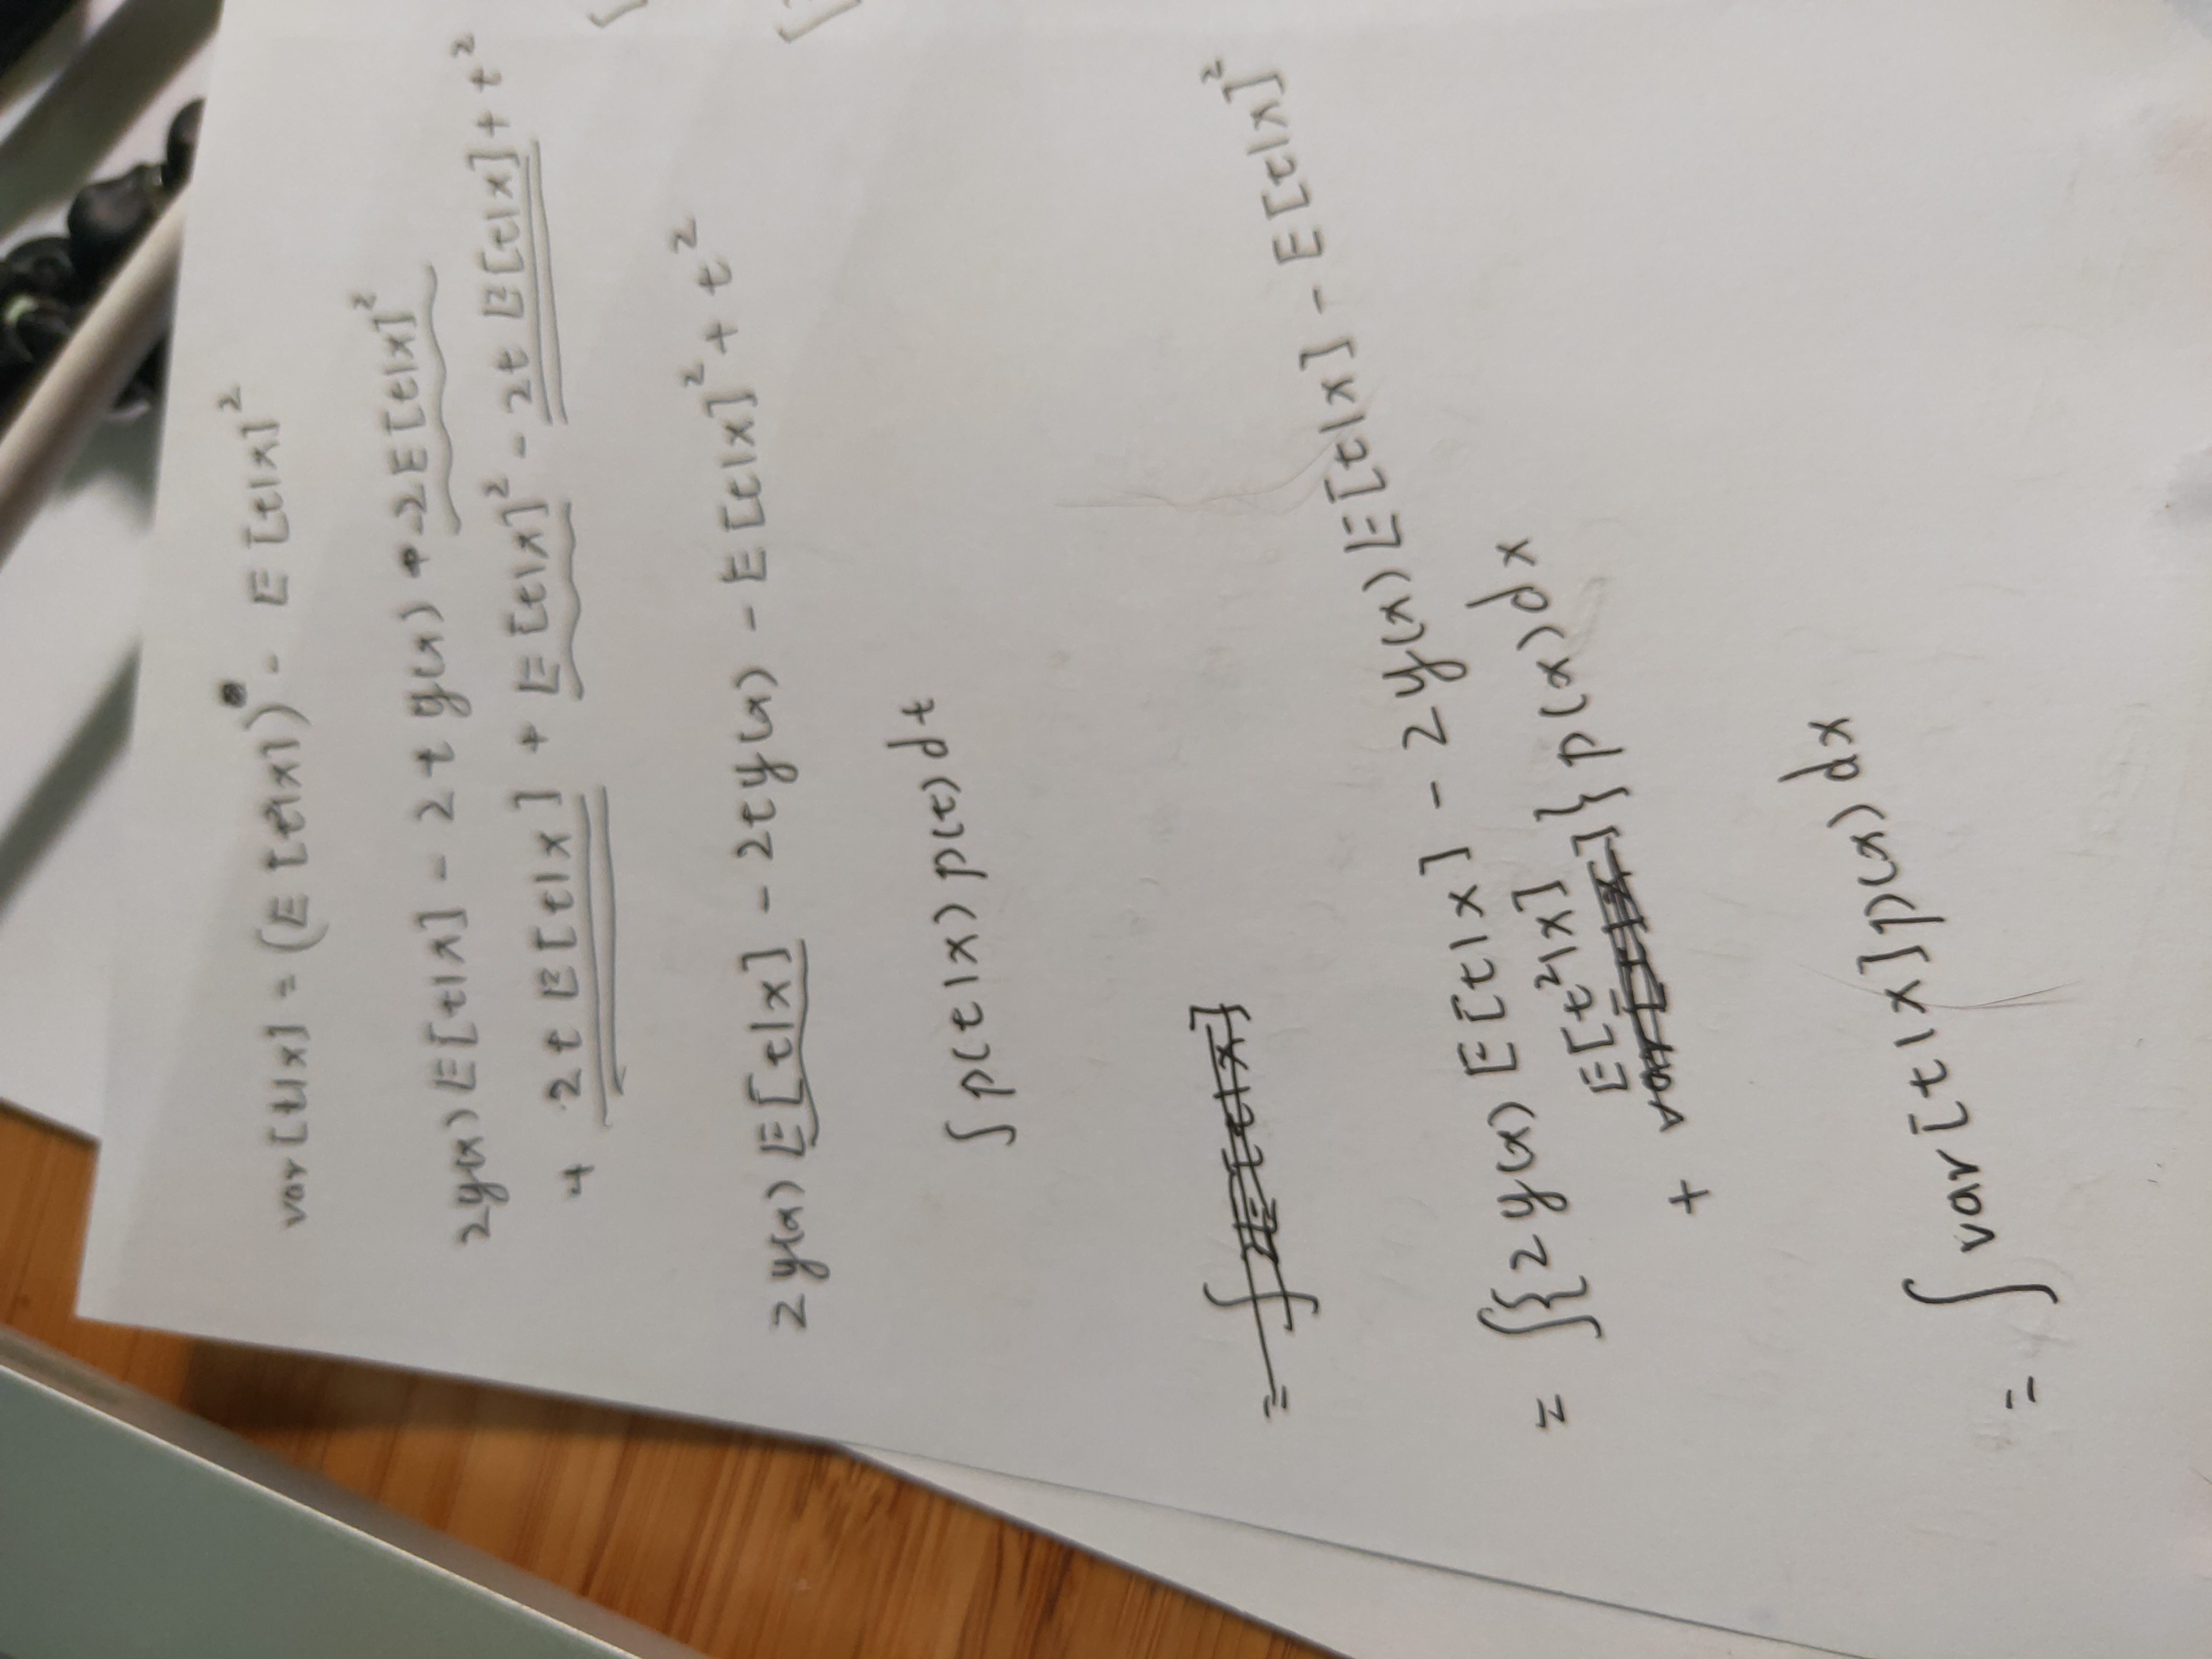 var[t|x] = (E[t²|x]) - E[t|x]²
2y(x)E[t|x] - 2ty(x) -2E[t|x]²
+ 2tE[t|x] + E[t|x]² - 2tE[t|x] + t²
2y(x)E[t|x] - 2ty(x) - E[t|x]² + t²
∫p(t|x)p(t)dt
= ∫{2y(x)E[t|x] - 2y(x)E[t|x] - E[t|x]²
+ E[t²|x]}p(x)dx
= ∫var[t|x]p(x)dx